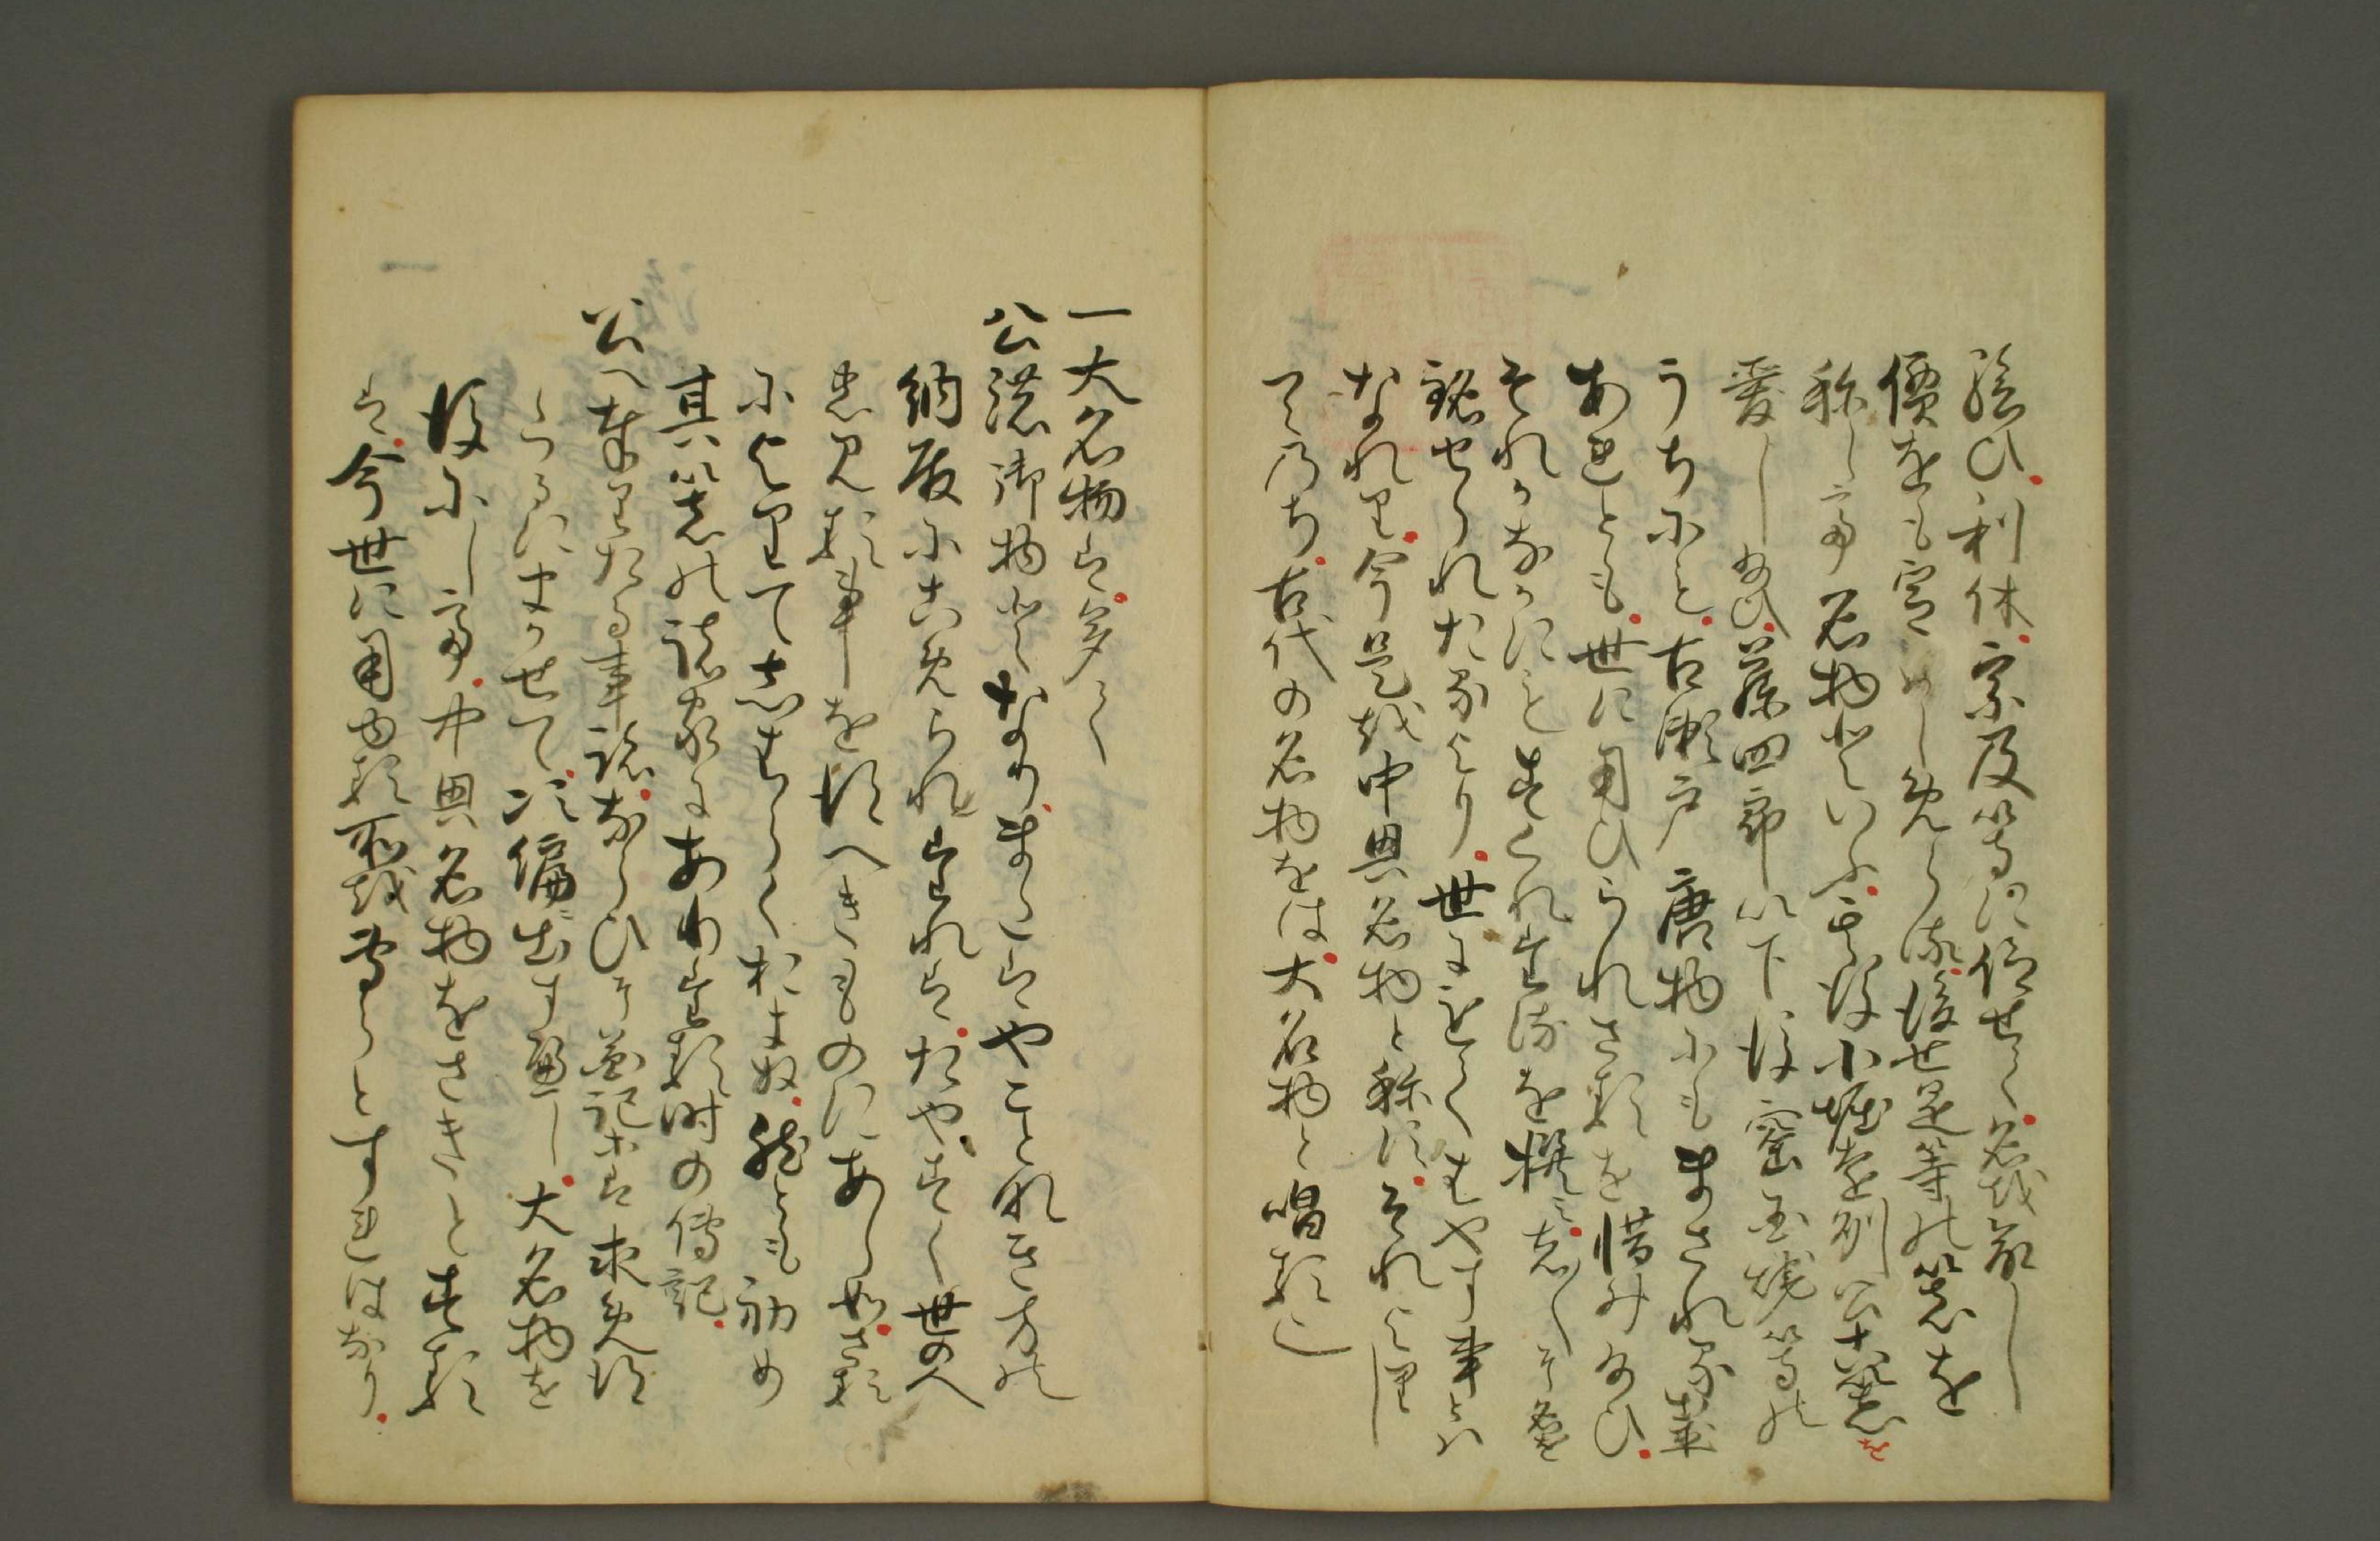 給ひ利休宗及等に仰せて名を命し
價をも定めしめらる後世是等の器を
称して名物といふ其後小堀遠州公古器を
愛し給ひ藤四郎以下後窯国焼等の
うちにも古瀬戸唐物にもまされる藁
あれとも世に用ひられさるを惜み給ひ
それかなかにもすくれたるを撰みあらて名を
銘せられたるより世にもてはやす事とは
なれり今是を中興名物と称すそれより
してのち古代の名物をは大名物と唱るに
一大名物は多く
公儀御物となりまたはやことなき方の
納殿にこめられたれはたやすく世の人
の見る事を得へきものにあらされ
によりてもらしおきぬ然とも初め
其器の諸家にありたる時の傳記
公へ奉りたる事跡ならひに寸法記等は求め得
たるにまかせて次編に出すへし大名物を
後にして中興名物をさきとする
は今世に用ゆる所を専らとすれはなり